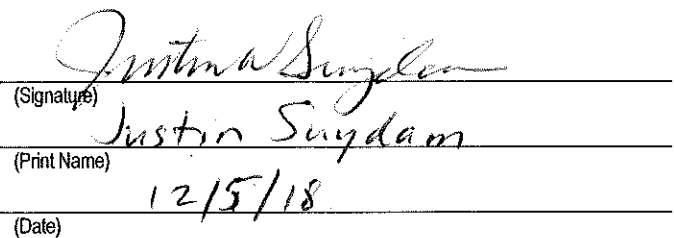 Justin W Suydam
(Signature)
Justin Suydam
(Print Name)
12/5/18
(Date)